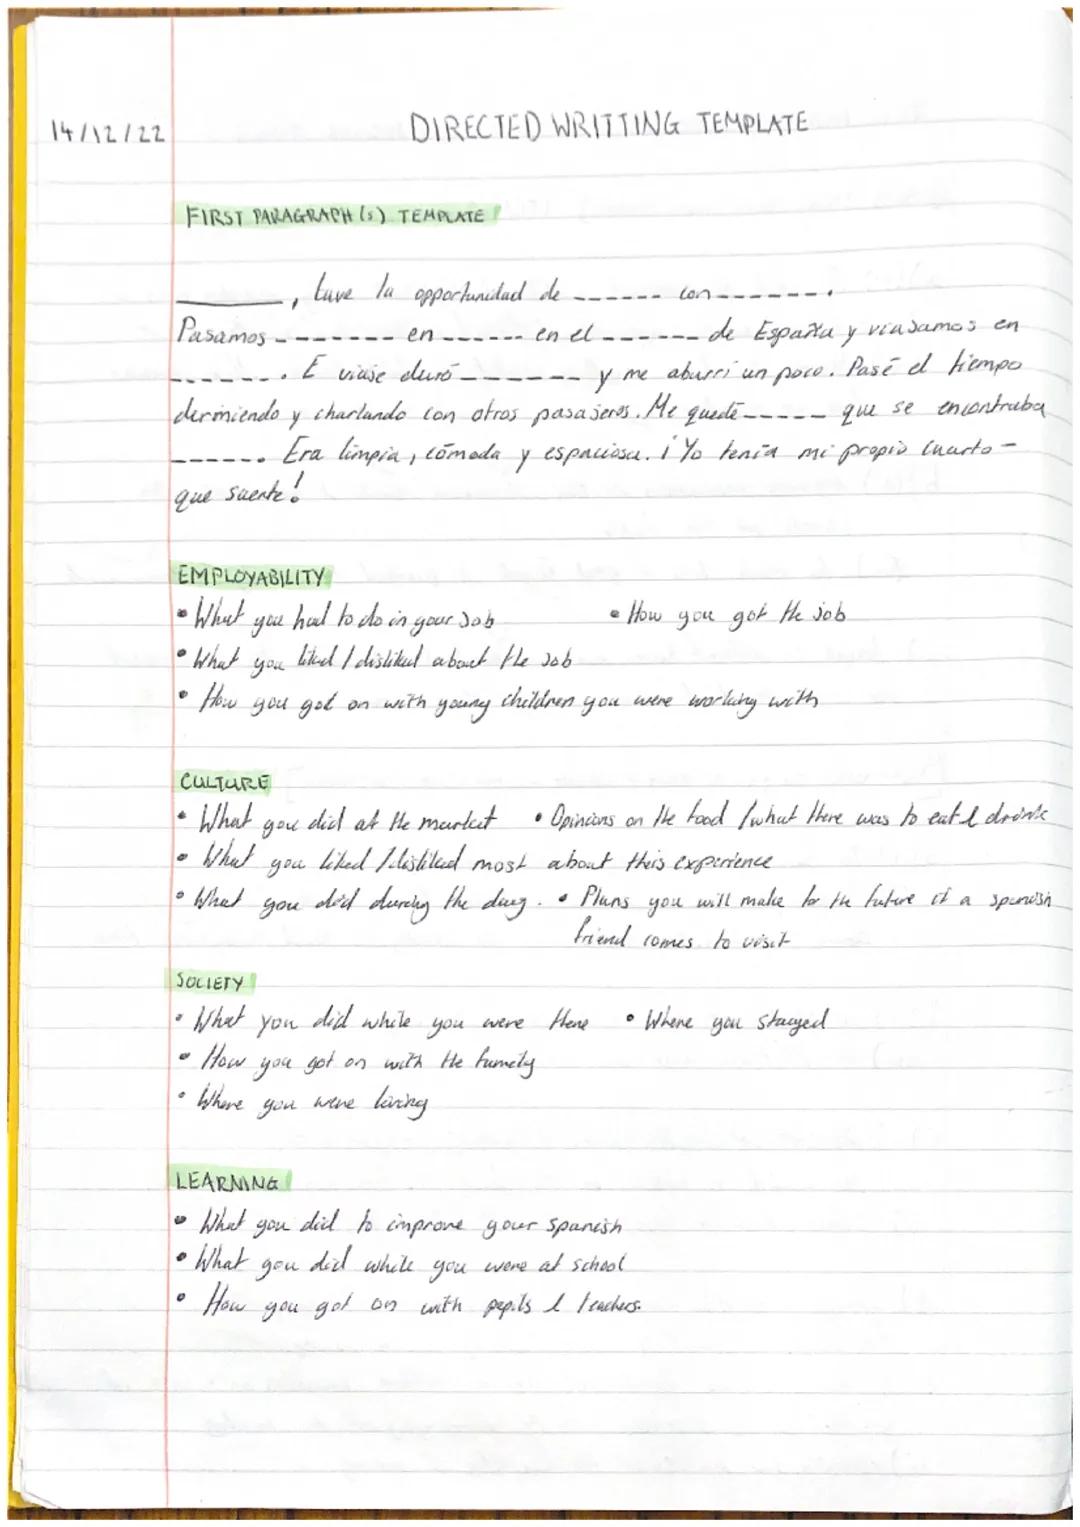 14/12/22
DIRECTED WRITTING TEMPLATE
FIRST PARAGRAPH(S) TEMPLATE
______, tuve la opportunidad de ------ con -------.
Pasamos -------- en ------ en el ------ de España y viajamos en
------. E viaje duró ------- y me aburrí un poco. Pasé el tiempo
dermiendo y charlando con otros pasajeros. Me quedé ----- que se encontraba
------. Era limpia, cómoda y espaciosa. ¡Yo tenía mi propio cuarto -
que suerte!
EMPLOYABILITY
• What you had to do in your job • How you got the job
• What you liked / disliked about the job
• How you got on with young children you were working with
CULTURE
• What you did at the market • Opinions on the food / what there was to eat & drink
• What you liked / disliked most about this experience
• What you did during the day. • Plans you will make for the future if a spanish
friend comes to visit
SOCIETY
• What you did while you were there • Where you stayed
• How you got on with the family
• Where you were living
LEARNING
• What you did to improve your spanish
• What you did while you were at school
• How you got on with pupils & teachers.